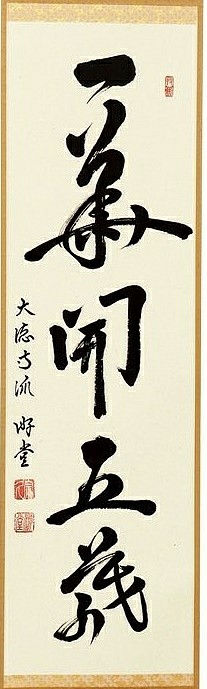 一華開五葉
大徳寺派 明堂